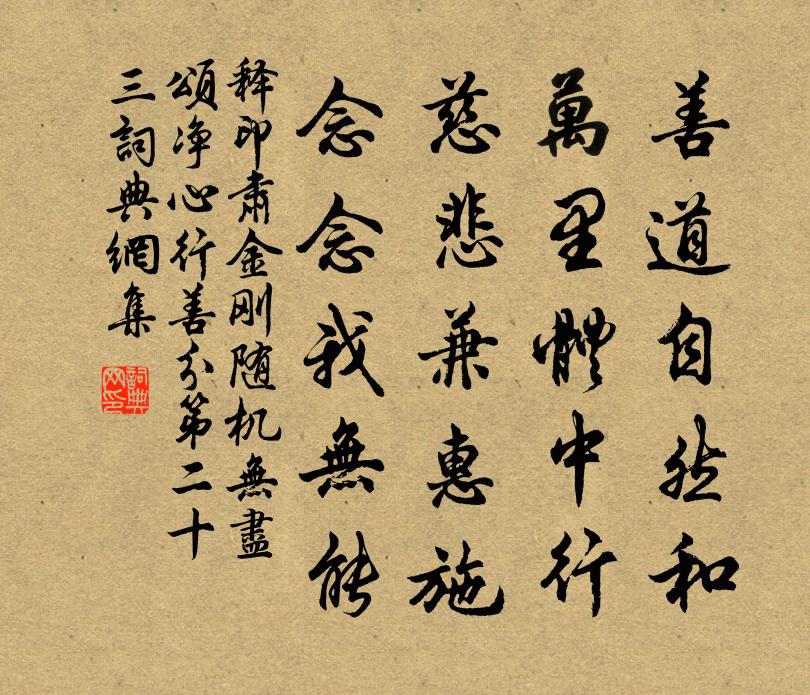 善道自然和
萬里體中行
慈悲兼惠施
念念我無能
释印肃金刚随机無盡
頌净心行善分第二十
三詞典網集
詞典
网印